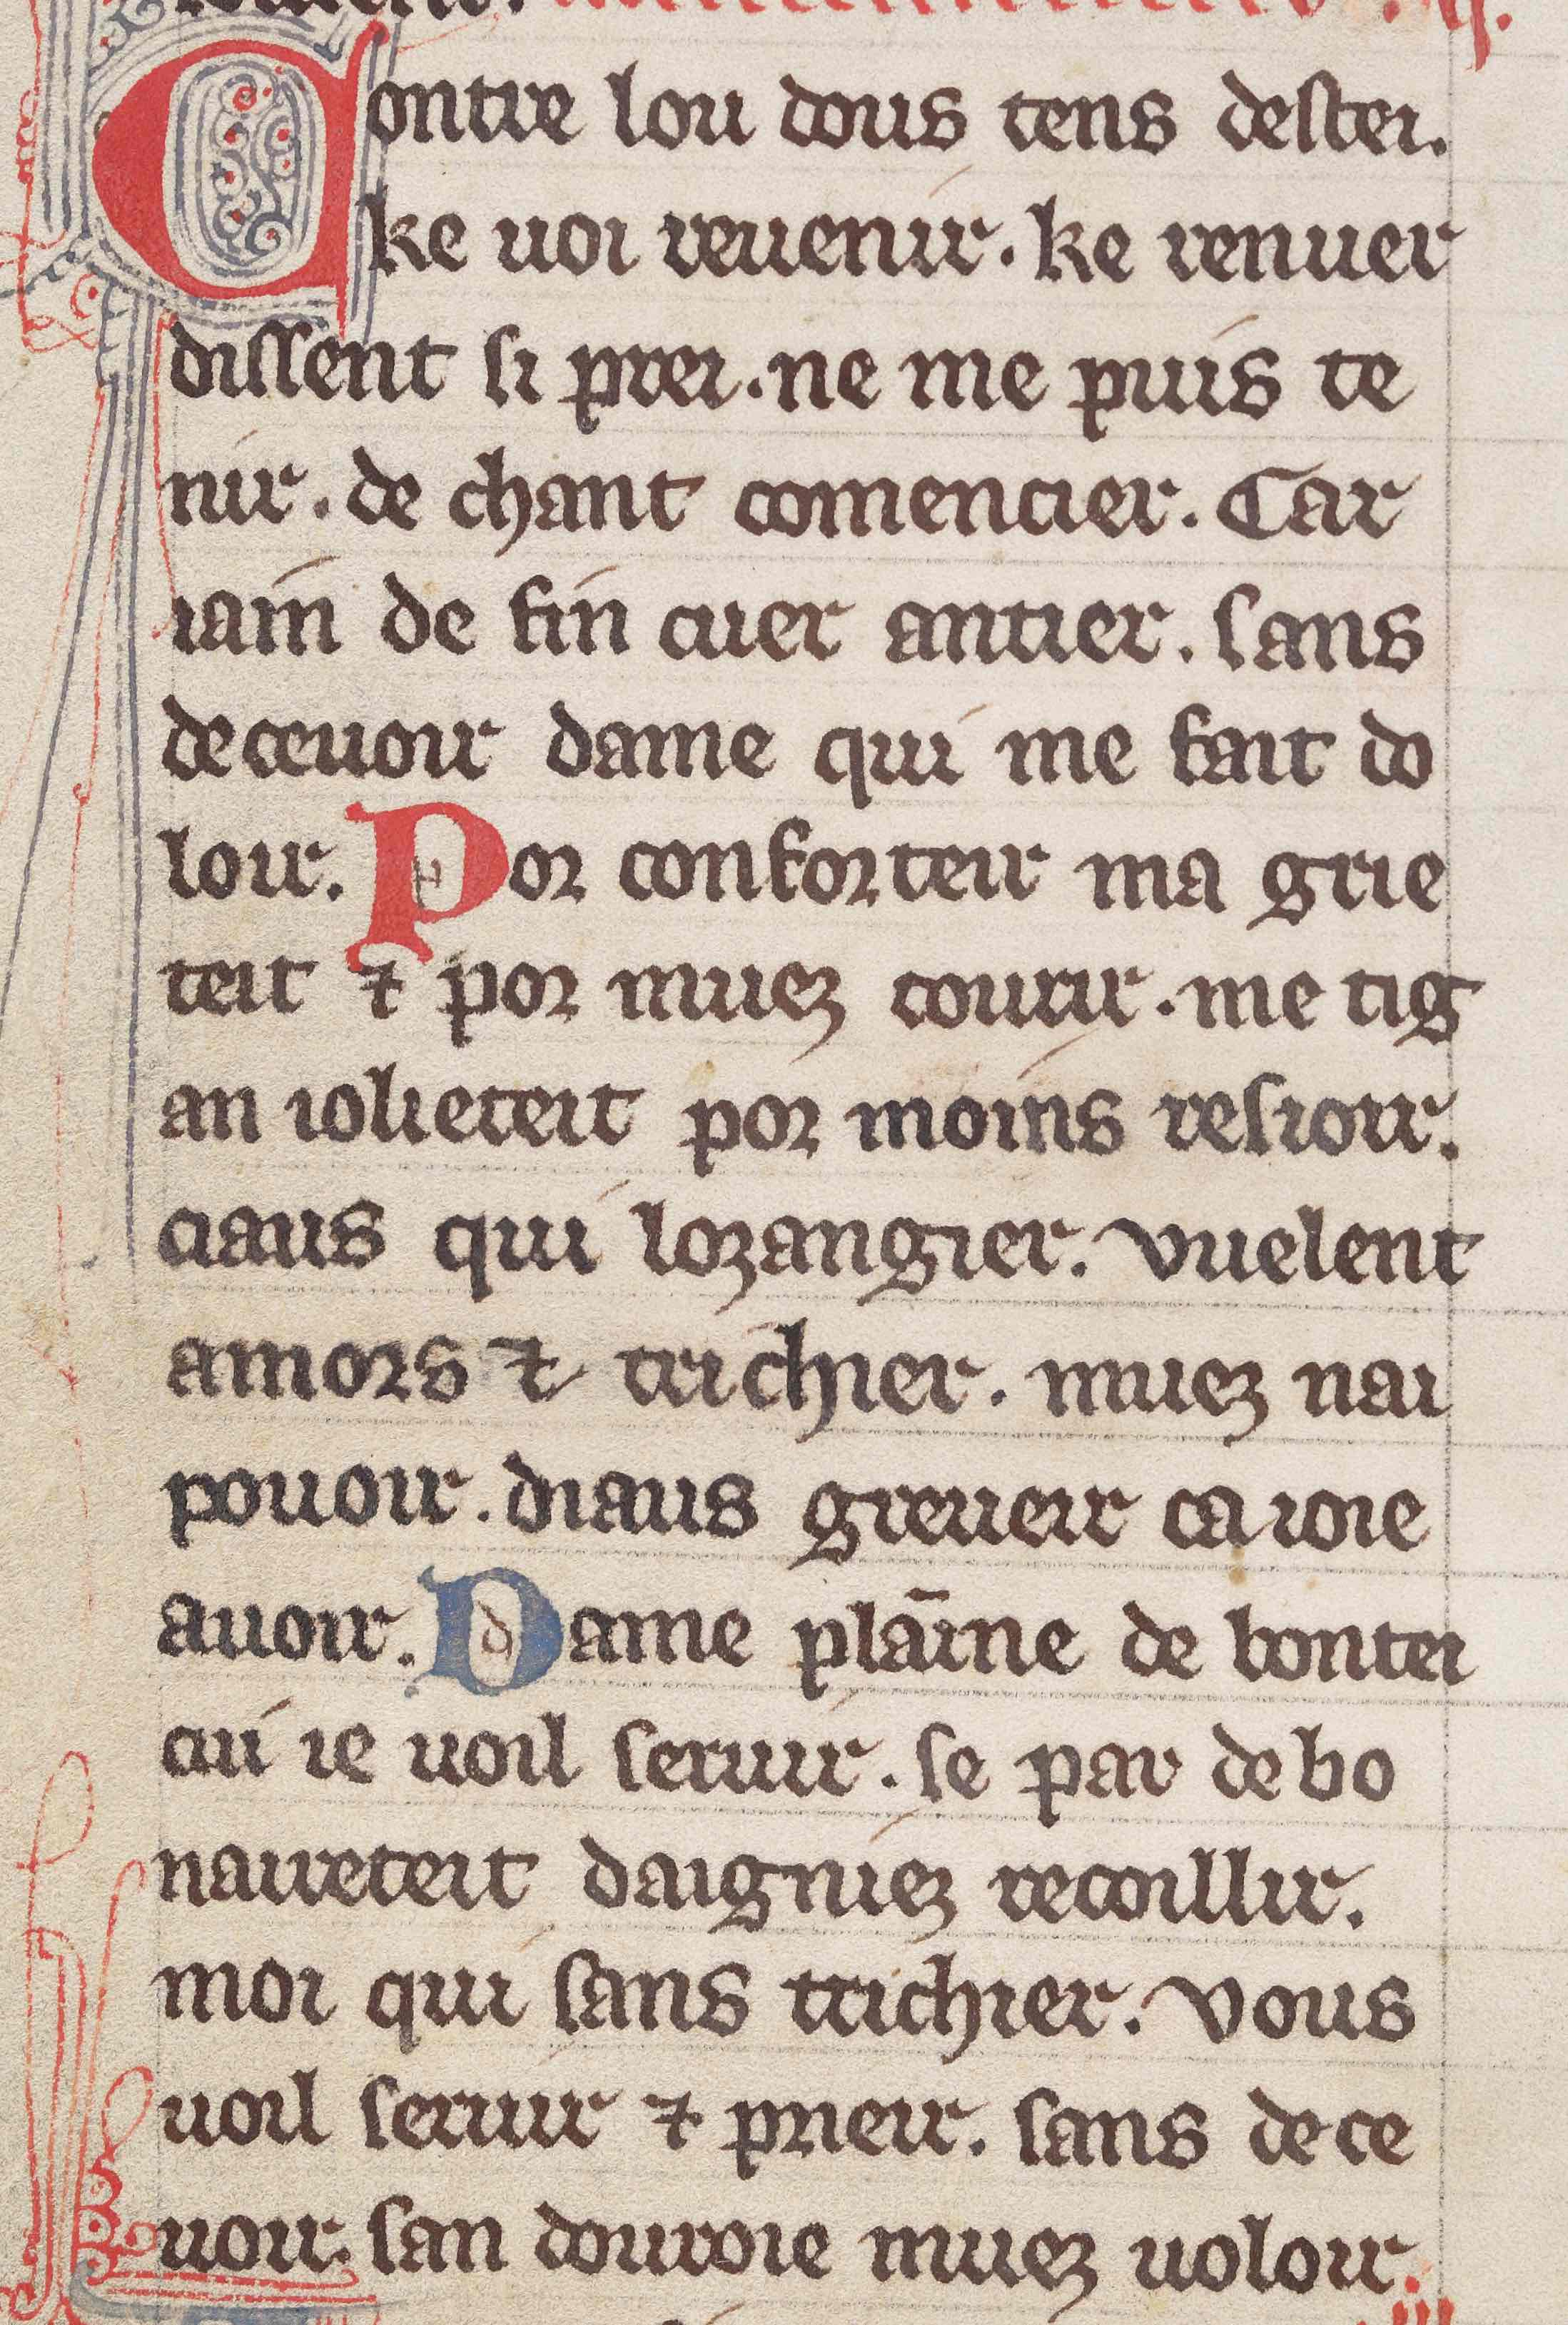 Contre lou dous tens destei.
ke uoi reuenir. ke renuer
dissent si prei. ne me puis te
nir. de chant comencier. Car
iaim de fin cuer antier. sans
deceuoir dame qui me fait do
loir. Por conforteir ma grie
teit ⁊ por muez courir. me tig
an iolieteit por moins resioir.
ciaus qui lozangier. vuelent
amors ⁊ trichier. muez nai
pouoir. diaus greueir ca ioie
auoir. Dame plāine de bontei
cui ie uoil seruir. se par debo
naireteit daigniez recoillir.
moi qui sans trichier. vous
uoil seruir ⁊ prieir. sans dece
uoir. san douroie muez uoloir.